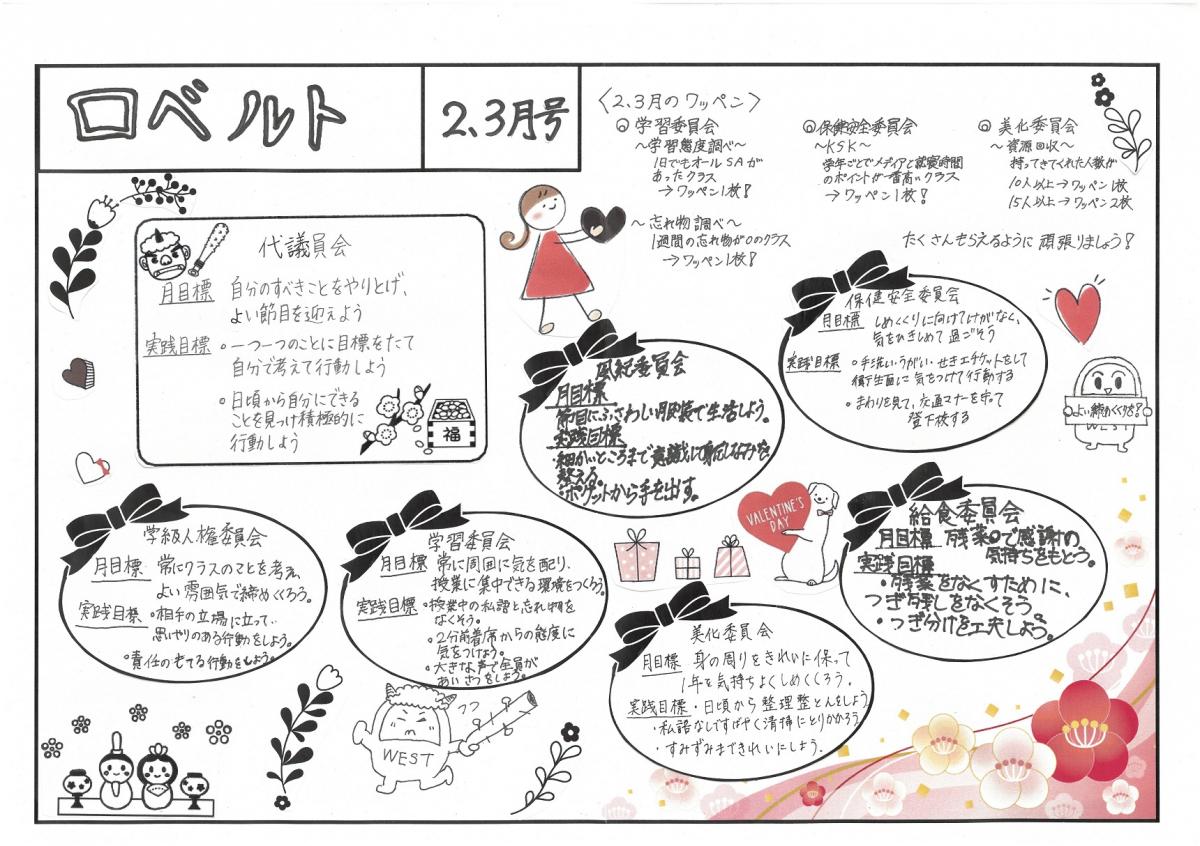 ロベルト
2、3月号
〈2、3月のワッペン〉
◎学習委員会
～学習態度調べ～
1日でもオールSAが
あったクラス
→ワッペン1枚！
～忘れ物調べ～
1週間の忘れ物が0のクラス
→ワッペン1枚！
◎保健安全委員会
～KSK～
学年ごとでメディアと就寝時間
のポイントが一番高いクラス
→ワッペン1枚！
◎美化委員会
～資源回収～
持ってきてくれた人数が
10人以上→ワッペン1枚
15人以上→ワッペン2枚
たくさんもらえるように頑張りましょう！
代議員会
月目標 自分のすべきことをやりとげ、
よい節目を迎えよう
実践目標・一つ一つのことに目標をたて
自分で考えて行動しよう
・日頃から自分にできる
ことを見つけ積極的に
行動しよう
福
風紀委員会
月目標
節目にふさわしい服装で生活しよう。
実践目標
・細かいところまで意識して身だしなみを
整える
・ポケットから手を出す。
保健安全委員会
月目標 しめくくりに向けてけがなく、
気をひきしめて過ごそう
実践目標・手洗い・うがい・せきエチケットをして
衛生面に気をつけて行動する
・まわりを見て、交通マナーを守って
登下校する
よい締めくくりを！
WEST
学級人権委員会
月目標 常にクラスのことを考え
よい雰囲気で締めくくろう。
実践目標・相手の立場に立って、
思いやりのある行動をしよう。
・責任のもてる行動をしよう。
学習委員会
月目標 常に周囲に気を配り、
授業に集中できる環境をつくろう。
実践目標・授業中の私語と忘れ物を
なくそう。
・2分前着席からの態度に
気をつけよう。
・大きな声で全員が
あいさつをしよう。
VALENTINE'S
DAY
給食委員会
月目標 残菜0で感謝の
気持ちをもとう。
実践目標
・残菜をなくすために、
つぎ残しをなくそう。
・つぎ分けを工夫しよう。
美化委員会
月目標 身の周りをきれいに保って
1年を気持ちよくしめくくろう。
実践目標・日頃から整理整とんをしよう
・私語なしですばやく清掃にとりかかろう。
・すみずみまできれいにしよう。
WEST